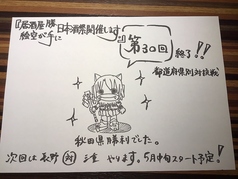 『居酒屋 勝
絵空が手に 日本酒祭開催します
第30回 終了!!
都道府県別対抗戦
秋田県勝利でした。
次回は長野 対 三重 やります。5月中旬スタート予定!